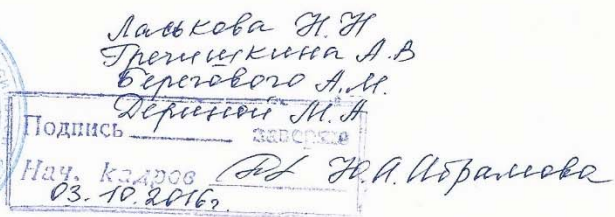 Ласькова Н.Н
Гречишкина А.В
Берегового А.М.
Дериной М.А
Подпись заверяю
Нач. кадров Ю.А. Абрамова
03.10.2016г.